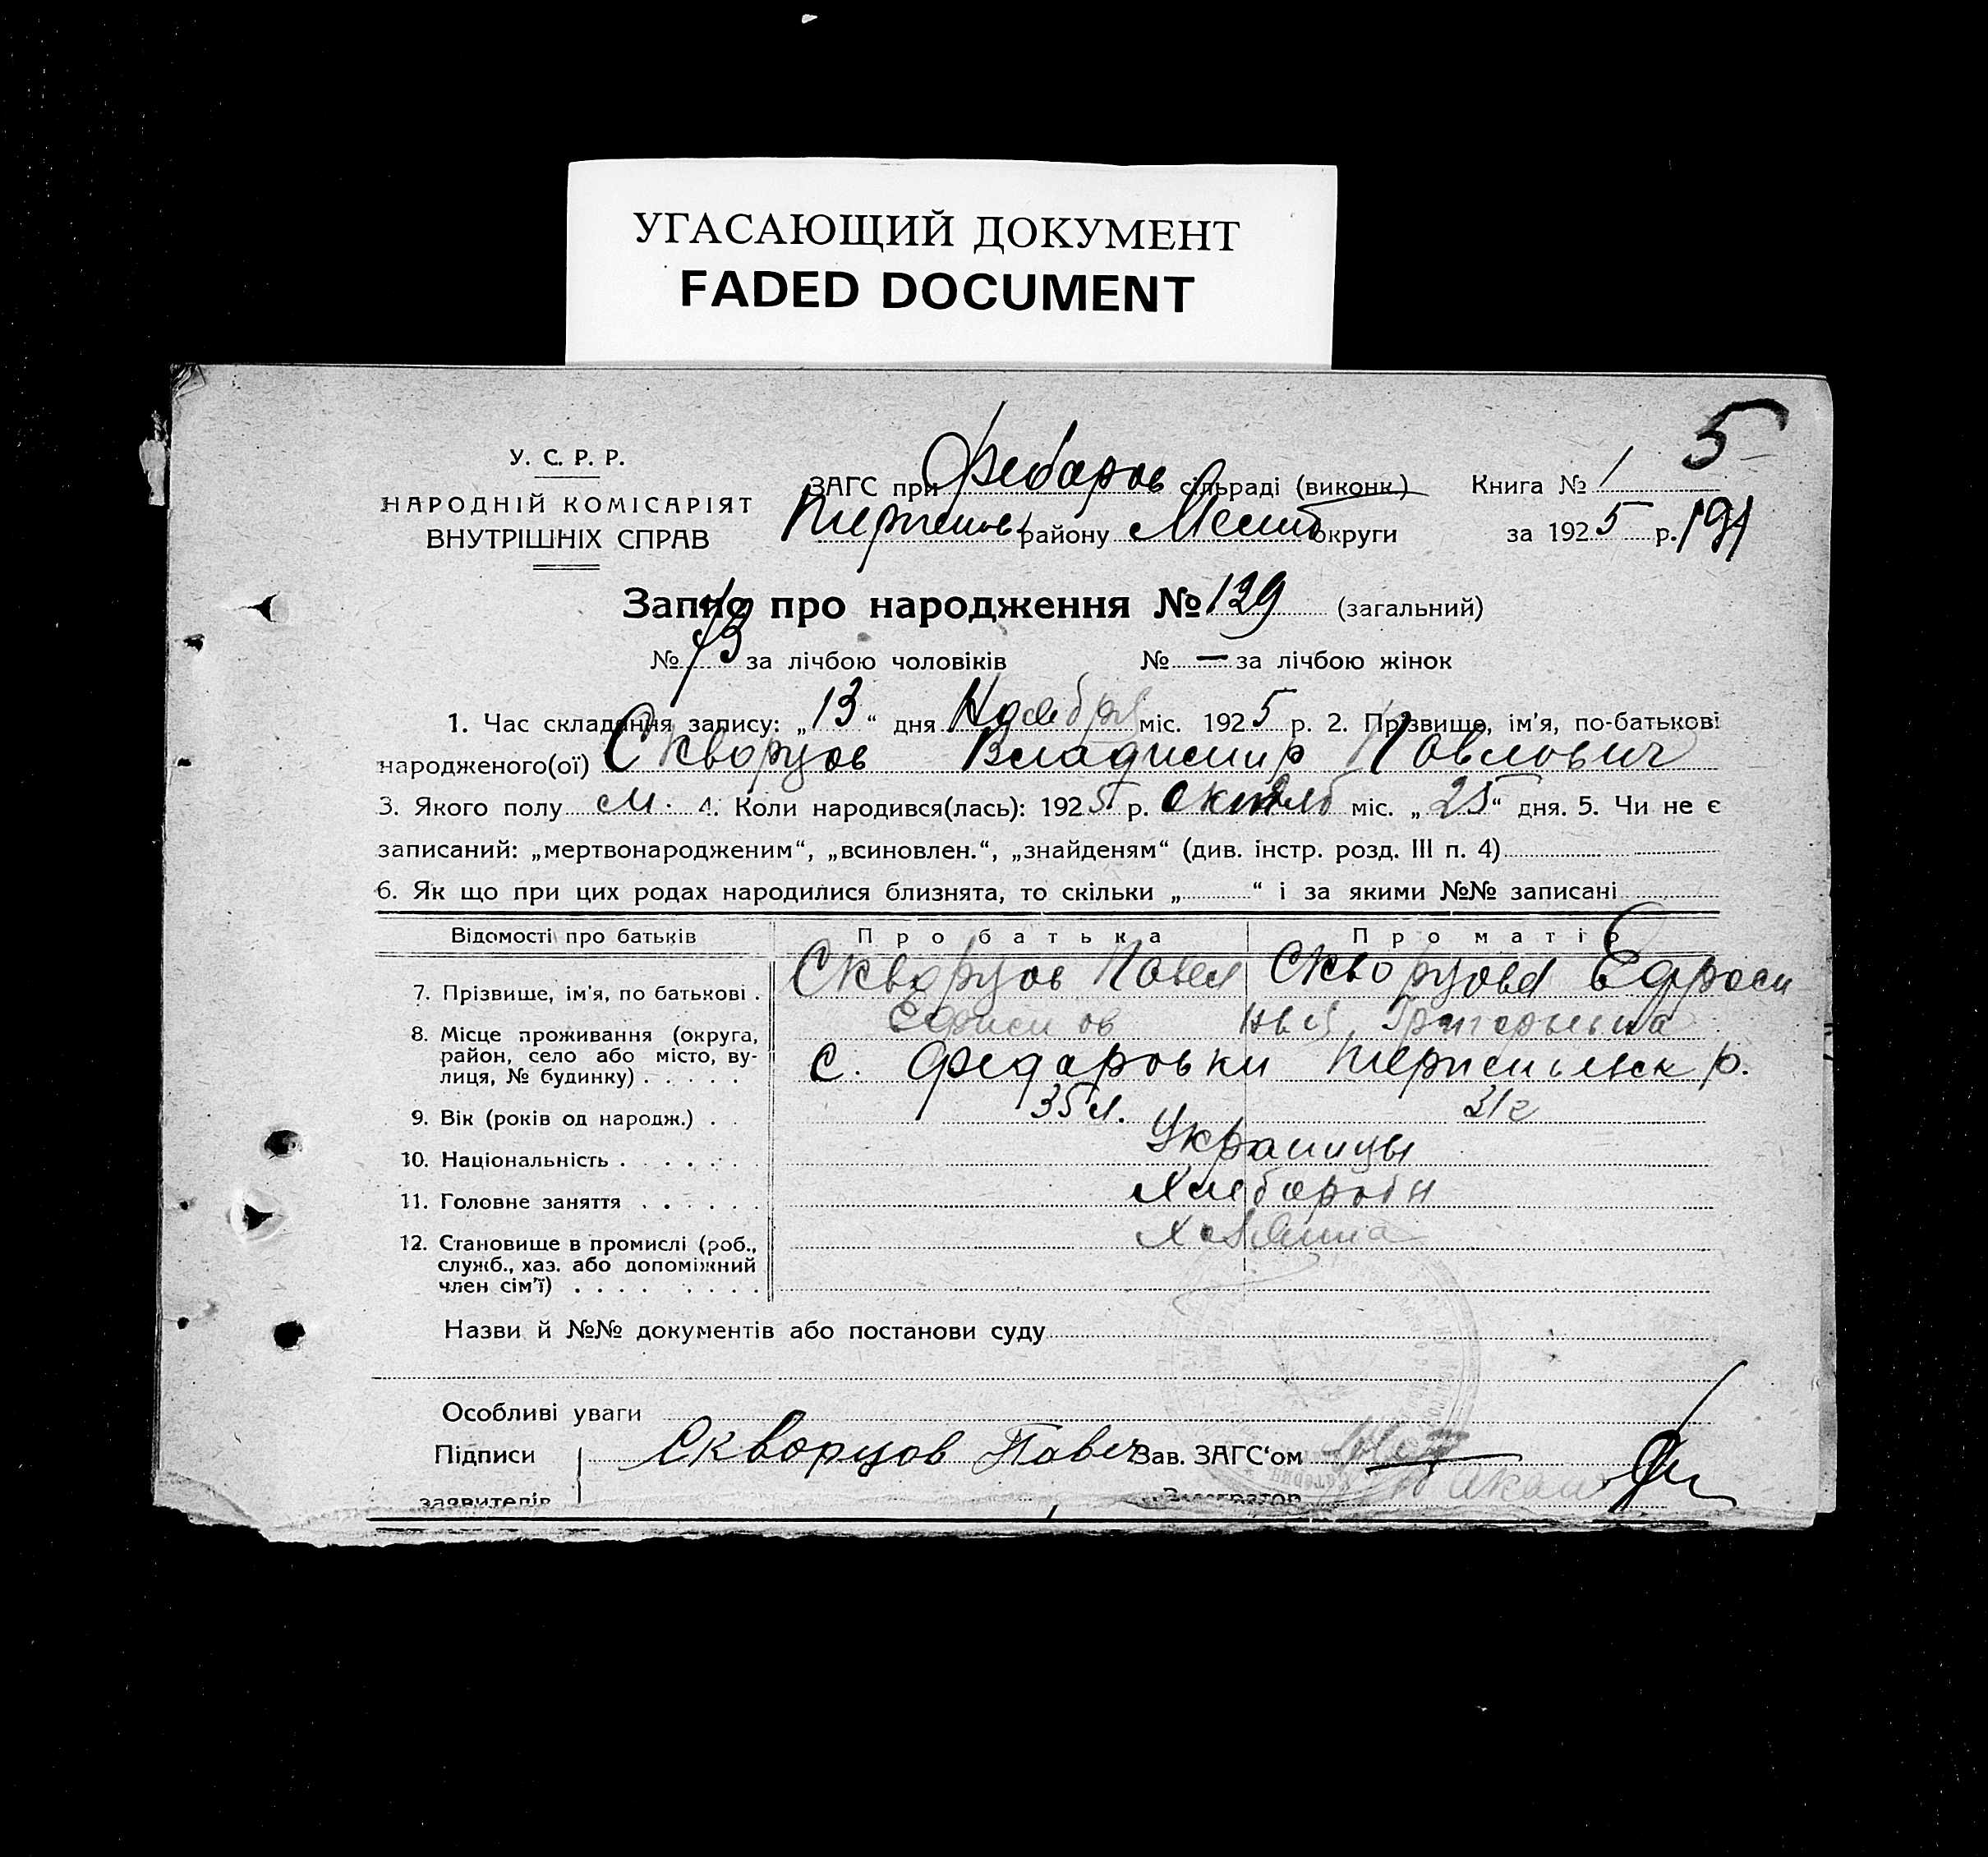 УГАСАЮЩИЙ ДОКУМЕНТ
FADED DOCUMENT
5
У. С. Р. Р.
НАРОДНІЙ КОМІСАРІЯТ
ВНУТРІШНІХ СПРАВ
ЗАГС при Федоров сільраді (виконк.)
району округи
Книга № 1
за 1925 р.
Запис про народження № 129 (загальний)
№ 73 за лічбою чоловіків № — за лічбою жінок
1. Час складання запису: „13“ дня Ноября міс. 1925 р. 2. Прізвище, ім'я, по-батькові
народженого(ої) Скворцов Владимир Павлович
3. Якого полу м. 4. Коли народився(лась): 1925 р. октяб міс. „25“ дня. 5. Чи не є
записаний: „мертвонародженим“, „всиновлен.“, „знайденям“ (див. інстр. розд. III п. 4)
6. Як що при цих родах народилися близнята, то скільки „ “ і за якими №№ записані
Відомості про батьків Про батька Про матір
7. Прізвище, ім'я, по батькові . Скворцов Павел Скворцова Ефроси
Григорьевна
8. Місце проживання (округа,
район, село або місто, ву-
лиця, № будинку) . . . . . с. Федаровки р.
9. Вік (років од народж.) . . 35 л. 31 г
10. Національність . . . . . . Украинцы
11. Головне заняття . . . . . . Хлебороби
12. Становище в промислі (роб.,
служб., хаз. або допоміжний
член сім'ї) . . . . . . . .
Назви й №№ документів або постанови суду
Особливі уваги
Підписи Скворцов Павел Зав. ЗАГС'ом
заявителів